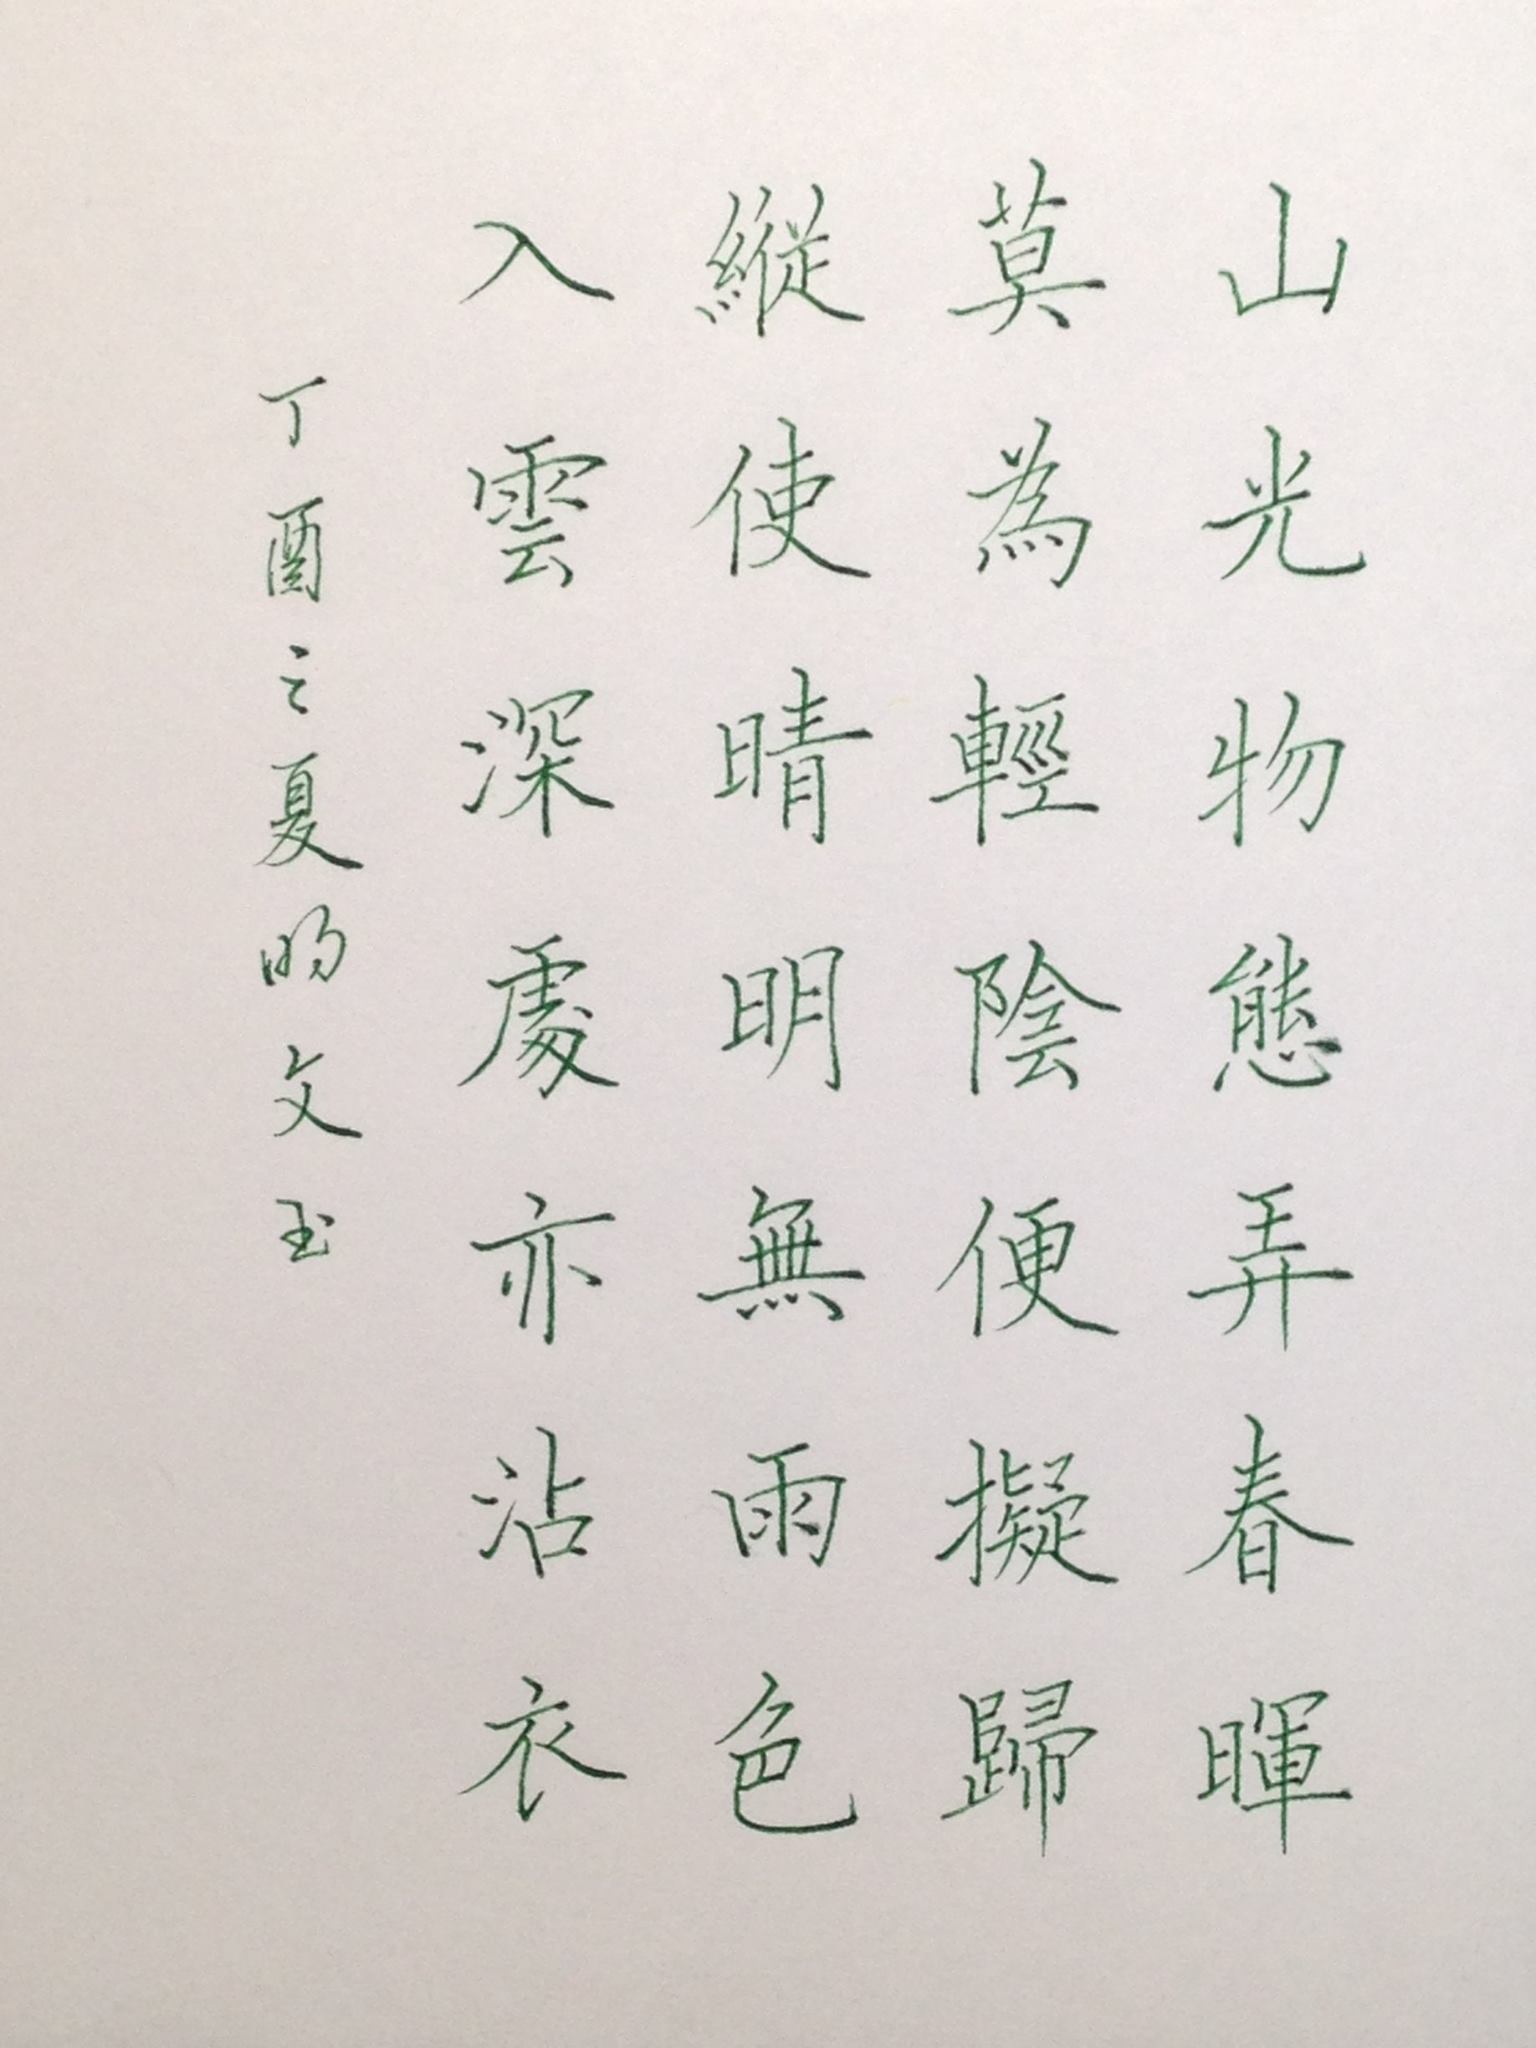 山光物態弄春暉
莫為輕陰便擬歸
縱使晴明無雨色
入雲深處亦沾衣
丁酉之夏昀文玉